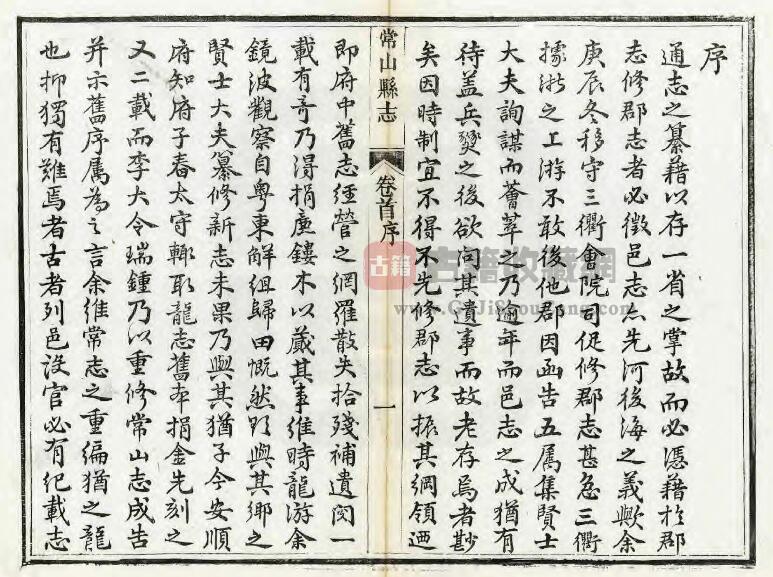 序
通志之纂藉以存一省之掌故而必憑藉於郡
志修郡志者必徵邑志亦先河後海之義歟余
庚辰冬移守三衢會院司促修郡志甚急三衢
據浙之上游不敢後他郡因函告五属集賢士
大夫詢謀而薈萃之乃逾年而邑志之成猶有
待盖兵燹之後欲问其遺事而故老存焉者尠
矣因時制宜不得不先修郡志以振其綱領迺
常山縣志
卷首序
一
即府中舊志經營之網羅散失拾殘補遺閲一
載有奇乃得捐廉鏤木以蕆其事維時龍游余
鏡波觀察自粤東解组歸田慨然欲與其鄉之
賢士大夫纂修新志未果乃與其猶子今安順
府知府子春太守輙取龍志舊本捐金先刻之
又二載而李大令瑞鍾乃以重修常山志成告
并示舊序属為之言余維常志之重編猶之龍
也抑獨有難焉者古者列邑設官必有纪載志
古籍
古籍收藏網